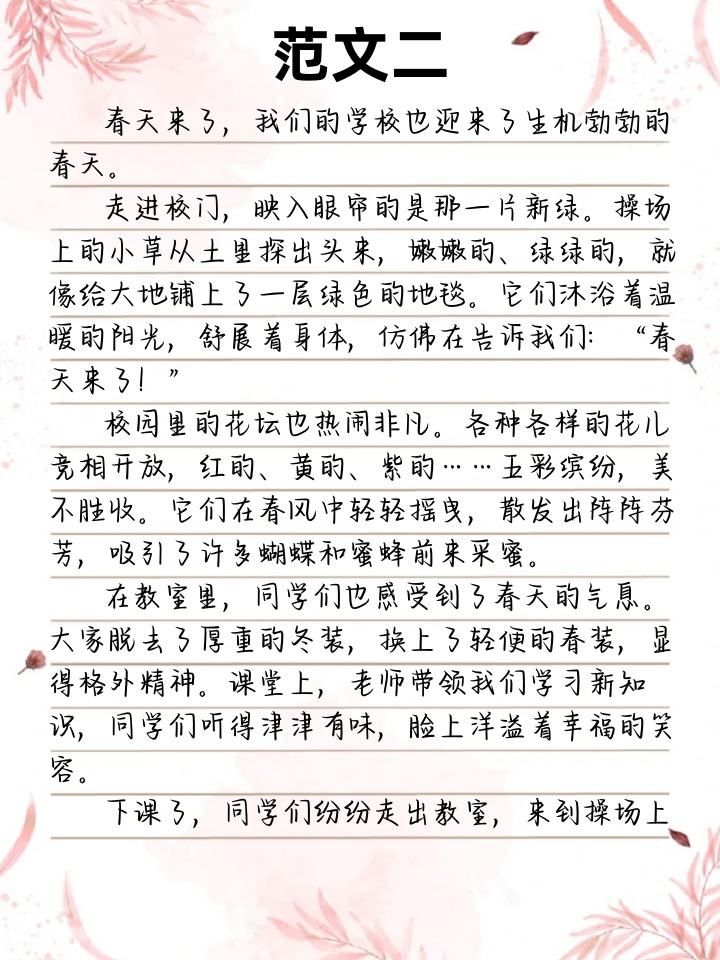 范文二
春天来了，我们的学校也迎来了生机勃勃的
春天。
走进校门，映入眼帘的是那一片新绿。操场
上的小草从土里探出头来，嫩嫩的、绿绿的，就
像给大地铺上了一层绿色的地毯。它们沐浴着温
暖的阳光，舒展着身体，仿佛在告诉我们：“春
天来了！”
校园里的花坛也热闹非凡。各种各样的花儿
竞相开放，红的、黄的、紫的……五彩缤纷，美
不胜收。它们在春风中轻轻摇曳，散发出阵阵芬
芳，吸引了许多蝴蝶和蜜蜂前来采蜜。
在教室里，同学们也感受到了春天的气息。
大家脱去了厚重的冬装，换上了轻便的春装，显
得格外精神。课堂上，老师带领我们学习新知
识，同学们听得津津有味，脸上洋溢着幸福的笑
容。
下课了，同学们纷纷走出教室，来到操场上